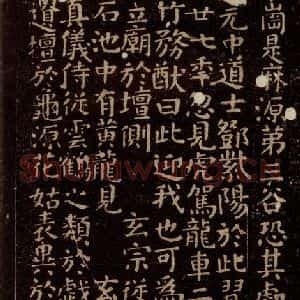 崗是麻源第三谷恐其處
元中道士鄧紫陽於此習
廿七年忽見虎駕龍車二
竹務猷曰此迎我也可為
立廟於壇側 玄宗從
石池中有黃龍見 玄
真儀侍從雲鶴之類於戲
遺壇於龜源花姑表異於